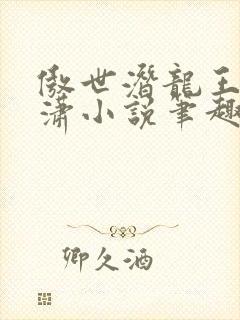 傲世潜龍王
潇小说筆趣
卿久酒